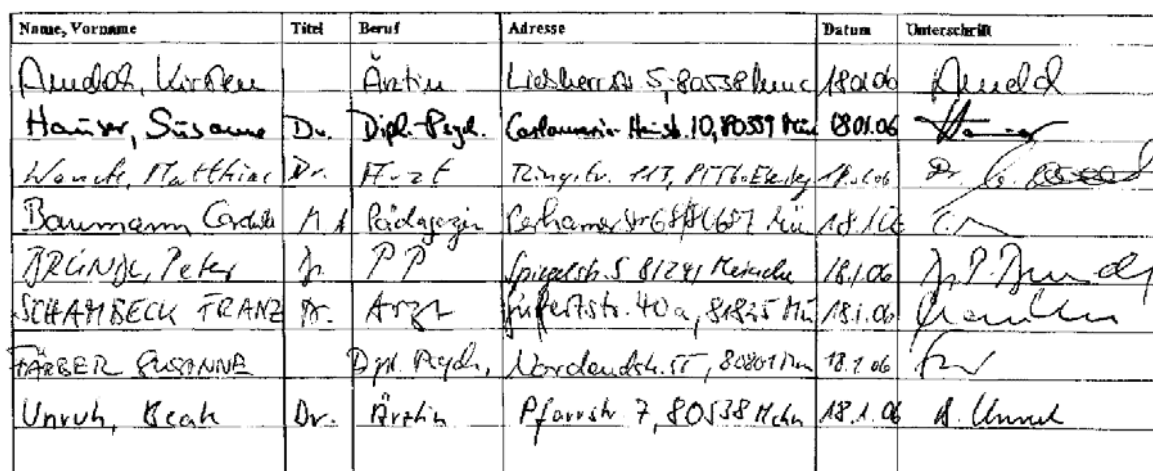 Name, Vorname Titel Beruf Adresse Datum Unterschrift
Kirsten Ärztin 5, 80538 18.01.06
Hauser, Susanne Dr. Dipl.-Psych. 10, 80539 Mün 18.01.06
Matthias Dr. Arzt Ringstr. 18.1.06 Dr.
Baumann Cordula M.A Pädagogin Perhamerstr 68, 80687 Mün 18.1.06
BRÜNDL, Peter Dr. PP Spiegelstr. 5 81241 München 18.1.06 Dr. P. Bründl
SCHAMBECK FRANZ Dr. Arzt 40a, 81825 Mü 18.1.06
FÄRBER SUSANNE Dipl. Psych, Nordendstr. 55, 80801 Mün 18.1.06
Unruh, Beate Dr. Ärztin Pfarrstr. 7, 80538 Mchn 18.1.06 B. Unruh